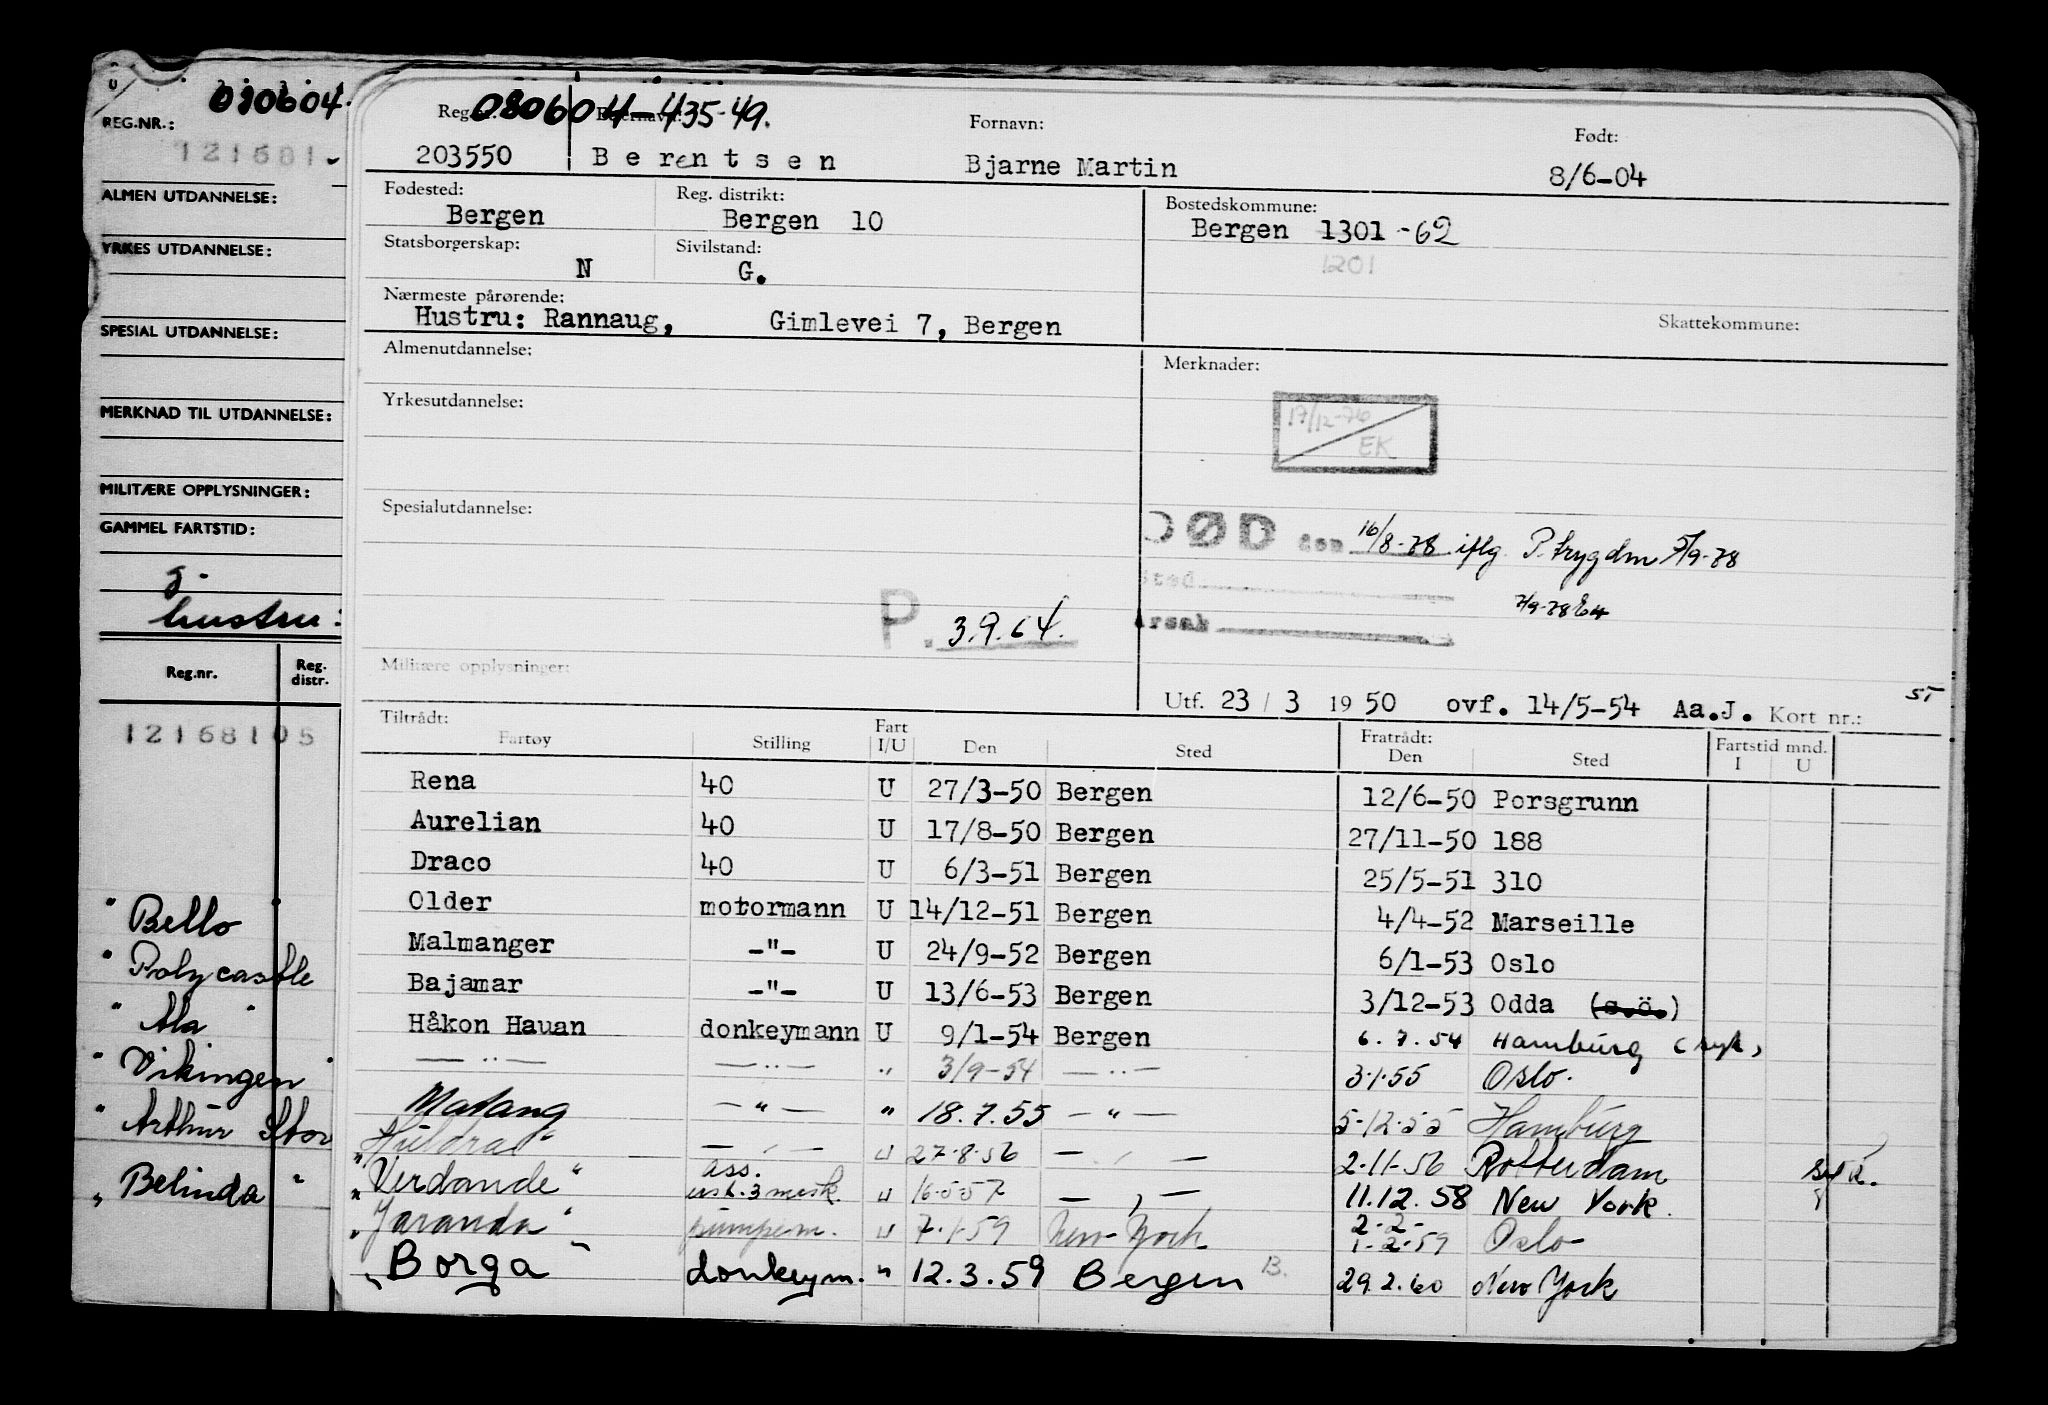 U
080604
REG.NR.:
121681
ALMEN UTDANNELSE:
YRKES UTDANNELSE:
SPESIAL UTDANNELSE:
MERKNAD TIL UTDANNELSE:
MILITÆRE OPPLYSNINGER:
GAMMEL FARTSTID:
g.
hustru:
Reg.nr. Reg. distr.
12168105
" Bello "
" Polycastle
" Ala "
" Vikingen "
" Arthur Stov
" Belinda "
080604-435-49.
Fornavn: Født:
203550 Berentsen Bjarne Martin 8/6-04
Fødested: Reg. distrikt: Bostedskommune:
Bergen Bergen 10 Bergen 1301 -62
1201
Statsborgerskap: Sivilstand:
N G.
Nærmeste pårørende: Skattekommune:
Hustru: Rannaug, Gimlevei 7, Bergen
Almenutdannelse: Merknader:
Yrkesutdannelse: 17/12-76 EK
Spesialutdannelse:
DØD den 16/8-78 iflg. P.trygdm 5/9-78
sted
7/9-78
årsak
P. 3.9.64.
Militære opplysninger:
Utf. 23 / 3 1950 ovf. 14/5-54 Aa.J. Kort nr.: ST
Tiltrådt: Fratrådt: Fartstid mnd.
Fartøy Stilling Fart I/U Den Sted Den Sted I U
Rena 40 U 27/3-50 Bergen 12/6-50 Porsgrunn
Aurelian 40 U 17/8-50 Bergen 27/11-50 188
Draco 40 U 6/3-51 Bergen 25/5-51 310
Older motormann U 14/12-51 Bergen 4/4-52 Marseille
Malmanger -"- U 24/9-52 Bergen 6/1-53 Oslo
Bajamar -"- U 13/6-53 Bergen 3/12-53 Odda (s.ö.)
Håkon Hauan donkeymann U 9/1-54 Bergen 6.7.54 Hamburg (syk)
—"— —"— " 3/9-54 —"— 3.1.55 Oslo.
Matang —"— " 18.7.55 —"— 5-12-55 Hamburg
"Huldra" —"— " 27-8-56 —"— 2-11-56 Rotterdam
"Verdande" ass. 3 mask. " 16.5.57 —"— 11.12.58 New York.
"Jaranda" pumpem. " 7.1.59 New York 2-2- 1-2-59 Oslo
"Borga" donkeym. " 12.3.59 Bergen B. 29.2.60 New York